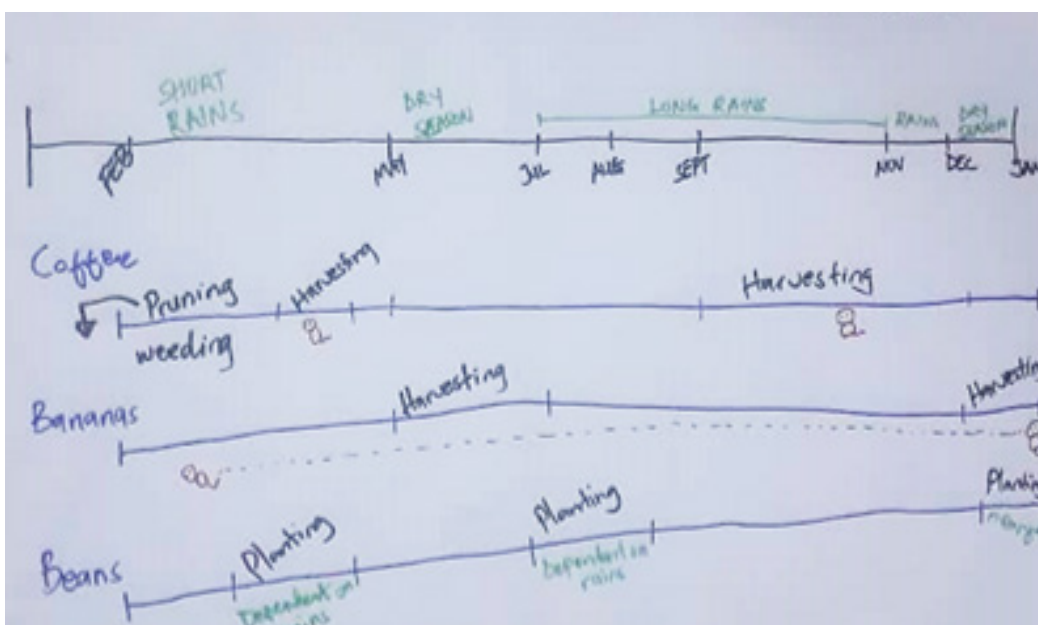 SHORT
RAINS
DRY
SEASON
LONG RAINS
RAINS
DRY
SEASON
FEB
MAY
JUL
AUG
SEPT
NOV
DEC
JAN
Coffee
Pruning
weeding
Harvesting
Harvesting
Bananas
Harvesting
Harvesting
Beans
Planting
Dependent on
rains
Planting
Dependent on
rains
Planting